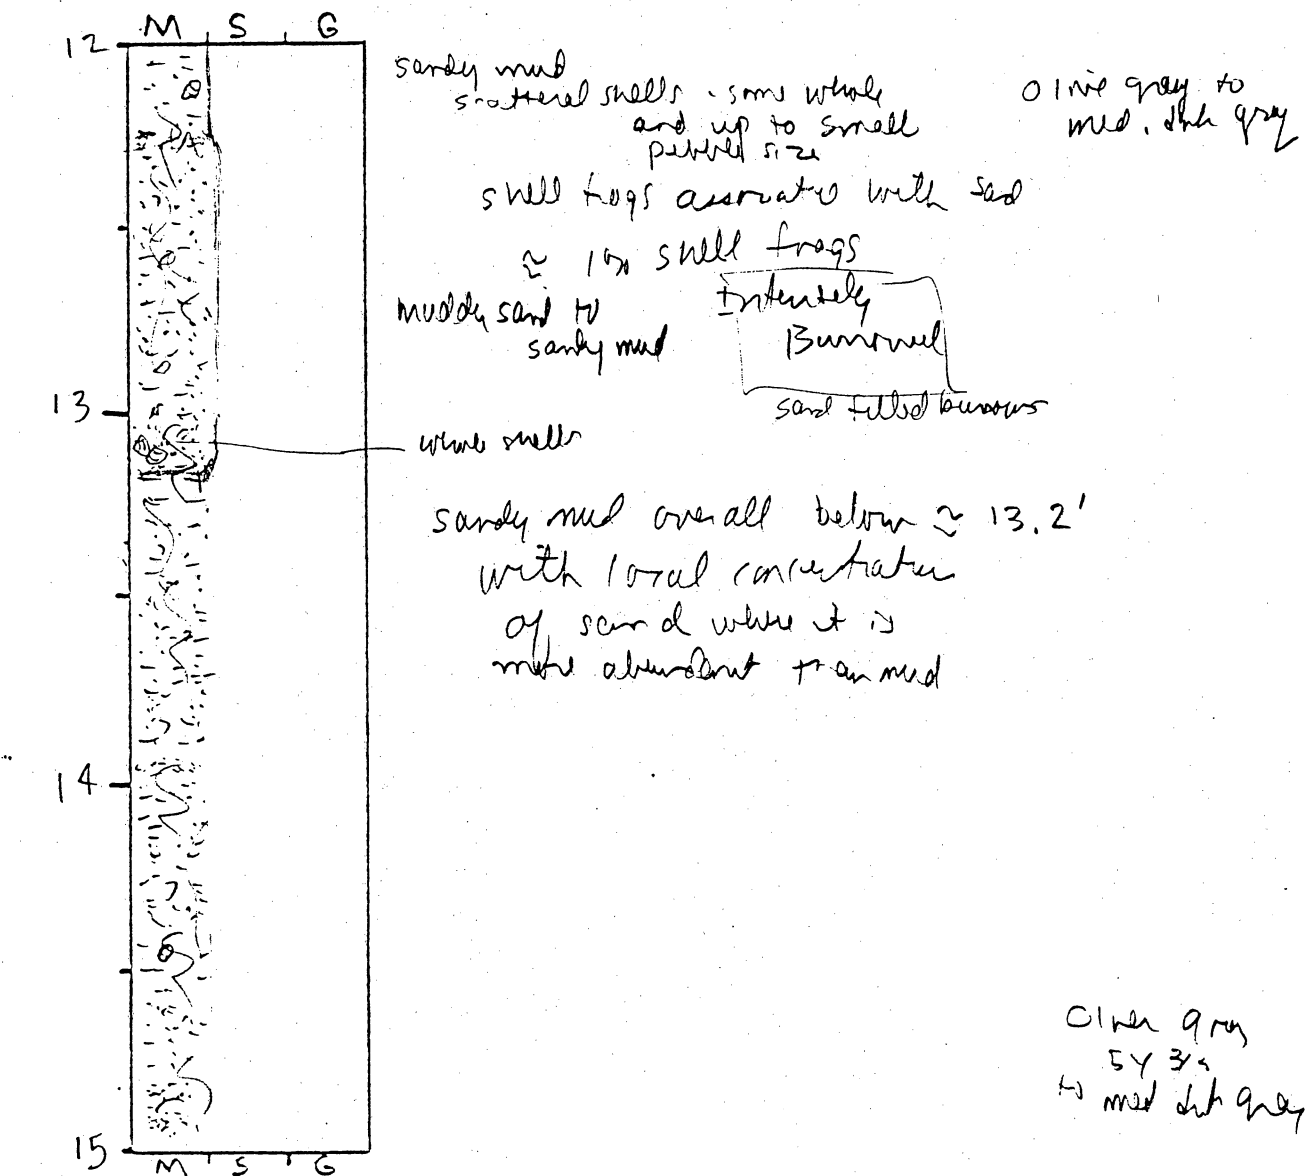 M S G
12
sandy mud
scattered shells - some whole
and up to small
pebble size
olive gray to
med. drk gray
shell frags associated with sand
≈ 1% shell frags
muddy sand to
sandy mud
Intensely
Burrowed
sand filled burrows
13
whole shells
sandy mud overall below ≈ 13.2'
with local concentration
of sand where it is
more abundant than mud
14
Olive gray
5Y
to med drk gray
15
M S G